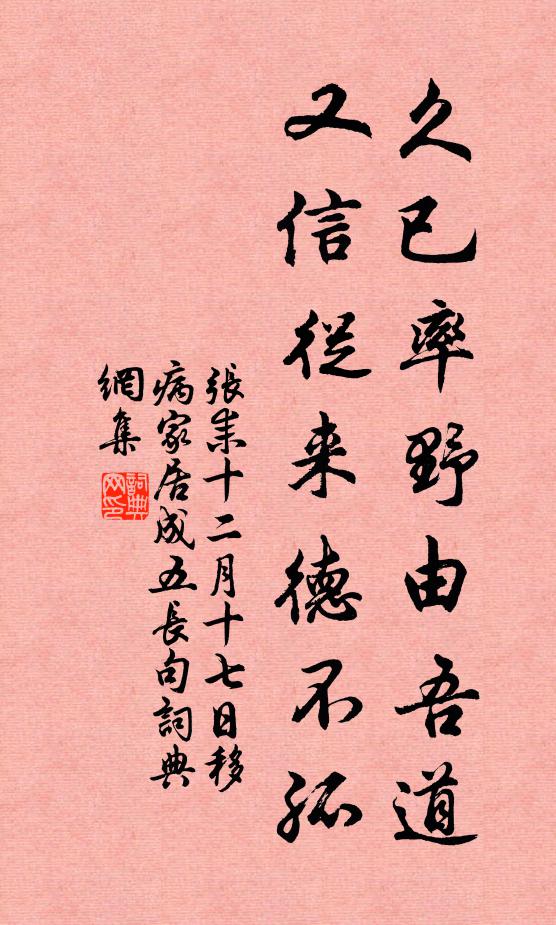 久已率野由吾道
又信從来德不孤
張耒十二月十七日移
病家居成五長句詞典
網集
詞典
网印